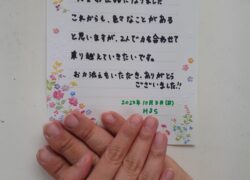 これからも、色々なことがある
と思いますが、2人で力を合わせて
乗り越えていきたいです。
お力添えもいただき、ありがとう
ございました!!
2023年10月8日(日)